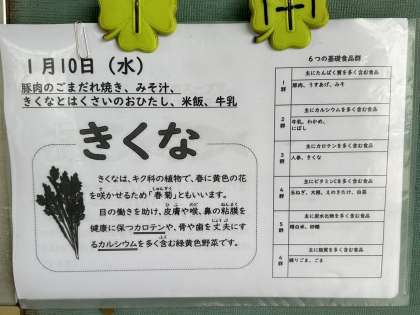 1月10日（水）
豚肉のごまだれ焼き、みそ汁、
きくなとはくさいのおひたし、米飯、牛乳
きくな
きくなは、キク科の植物で、春に黄色の花
を咲かせるため「春菊」ともいいます。
しゅんぎく
目の働きを助け、皮膚や喉、鼻の粘膜を
健康に保つカロテンや、骨や歯を丈夫にす
るカルシウムを多く含む緑黄色野菜です。
6つの基礎食品群
主にたんぱく質を多く含む食品
1群
豚肉、うすあげ、みそ
主にカルシウムを多く含む食品
2群
牛乳、わかめ、
にぼし
主にカロテンを多く含む食品
3群
人参、きくな
主にビタミンCを多く含む食品
4群
玉ねぎ、大根、えのきたけ、白菜
主に炭水化物を多く含む食品
5群
精白米、砂糖
主に脂質を多く含む食品
6群
練りごま、ごま